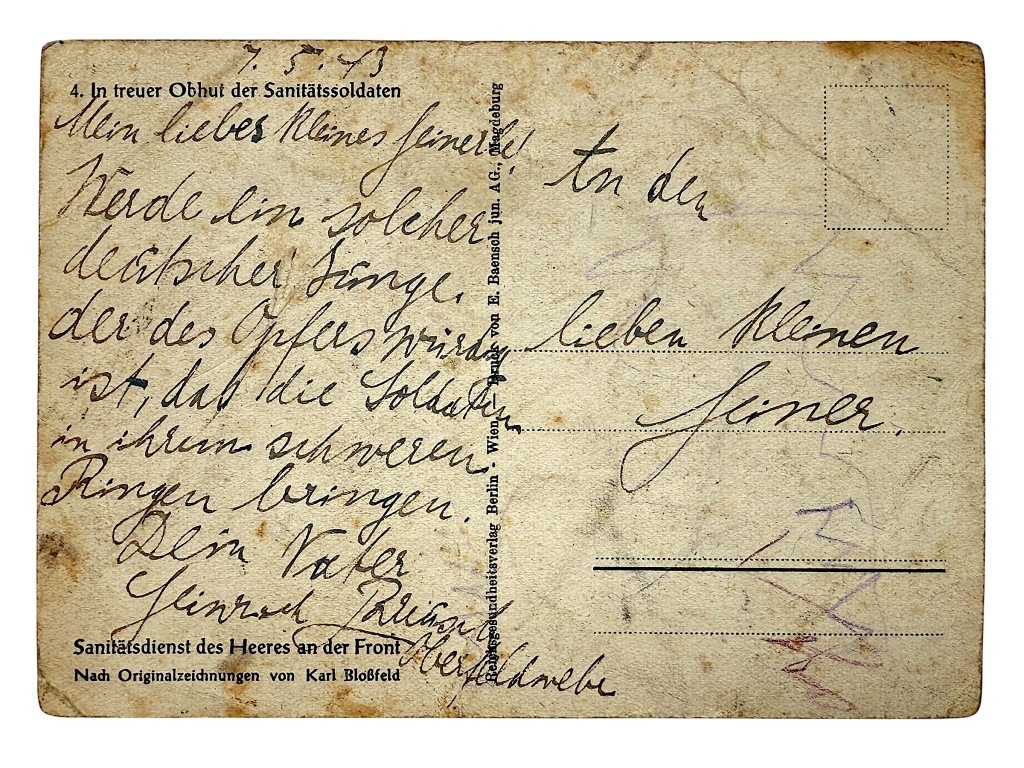 7. 5. 43
4. In treuer Obhut der Sanitätssoldaten
Mein liebes kleines Heinerle!
Werde ein solcher
deutscher Junge.
der des Opfers würdig
ist, das die Soldaten
in ihrem schweren
Ringen bringen.
Dein Vater
Heinrich
Oberfeldwebe
Sanitätsdienst des Heeres an der Front
Nach Originalzeichnungen von Karl Bloßfeld
Reichsgesundheitsverlag Berlin - Wien. - Druck von E. Baensch jun. AG., Magdeburg
An den
lieben kleinen
Heiner.